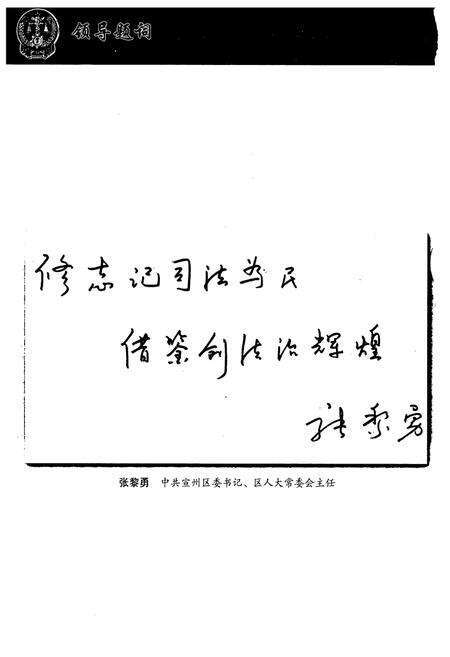 领导题词
修志记司法为民
借鉴创法治辉煌
张黎勇
张黎勇 中共宣州区委书记、区人大常委会主任